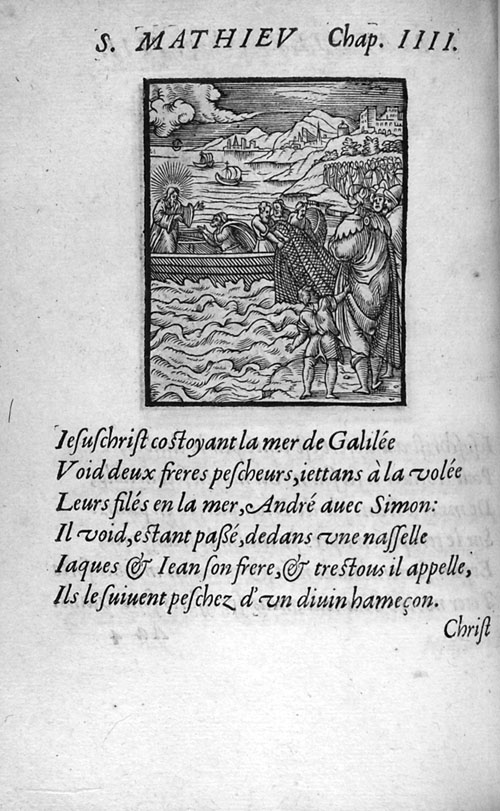 S. MATHIEV Chap. IIII.
Iesuschrist costoyant la mer de Galilée
Void deux freres pescheurs, iettans à la volée
Leurs filés en la mer, André auec Simon:
Il void, estant paßé, dedans vne nasselle
Iaques & Iean son frere, & trestous il appelle,
Ils le suiuent peschez d'vn diuin hameçon.
Christ